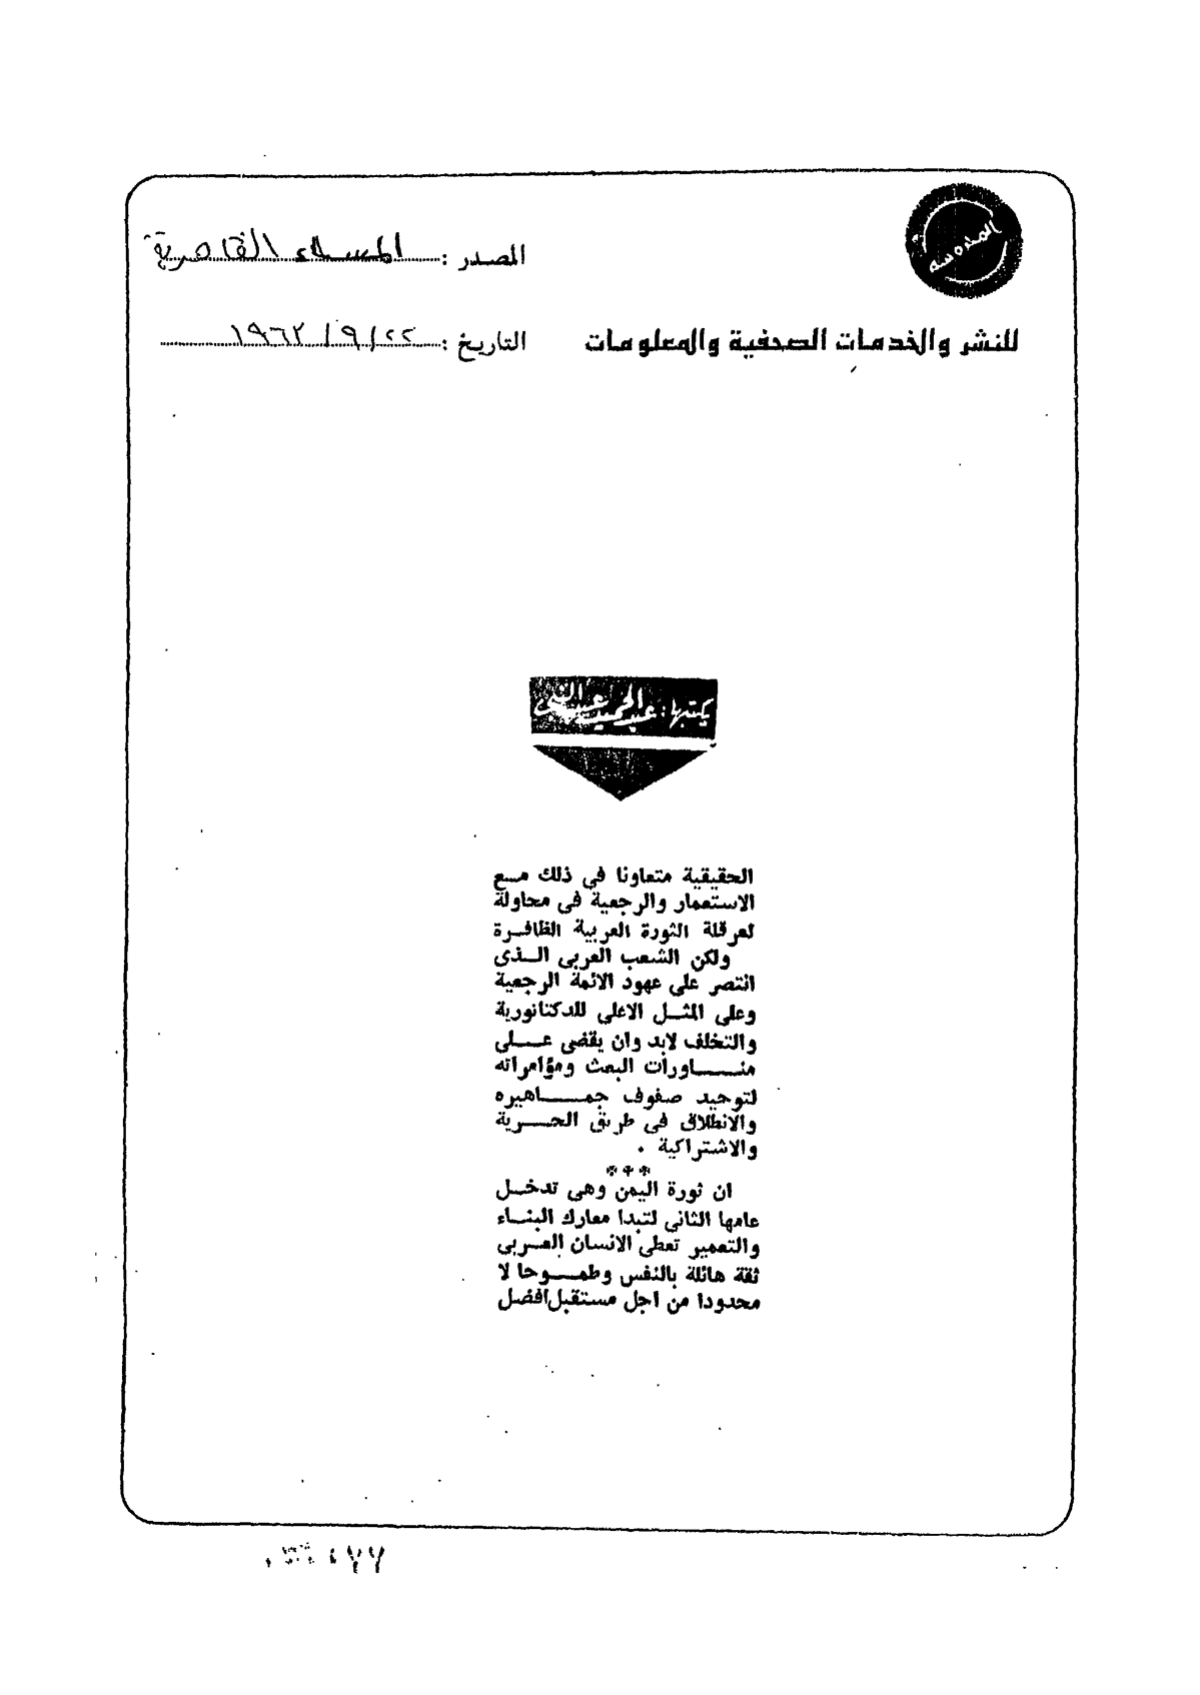 المدوسة
المصدر : المساء القاهرية
للنشر والخدمات الصحفية والمعلومات
التاريخ : ٢٢ / ٩ / ١٩٦٣
يكتبها : عبد الحميد عبد النبى
الحقيقية متعاونا فى ذلك مـع
الاستعمار والرجعية فى محاولة
لعرقلة الثورة العربية الظافـرة
ولكن الشعب العربى الـذى
انتصر على عهود الائمة الرجعية
وعلى المثـل الاعلى للدكتاتورية
والتخلف لابد وان يقضى عـلى
منـــاورات البعث ومؤامراته
لتوحيد صفوف جمــاهيره
والانطلاق فى طريق الحــرية
والاشتراكية .
***
ان ثورة اليمن وهى تدخـل
عامها الثانى لتبدا معارك البنـاء
والتعمير تعطى الانسان العـربى
ثقة هائلة بالنفس وطمــوحا لا
محدودا من اجل مستقبل افضل